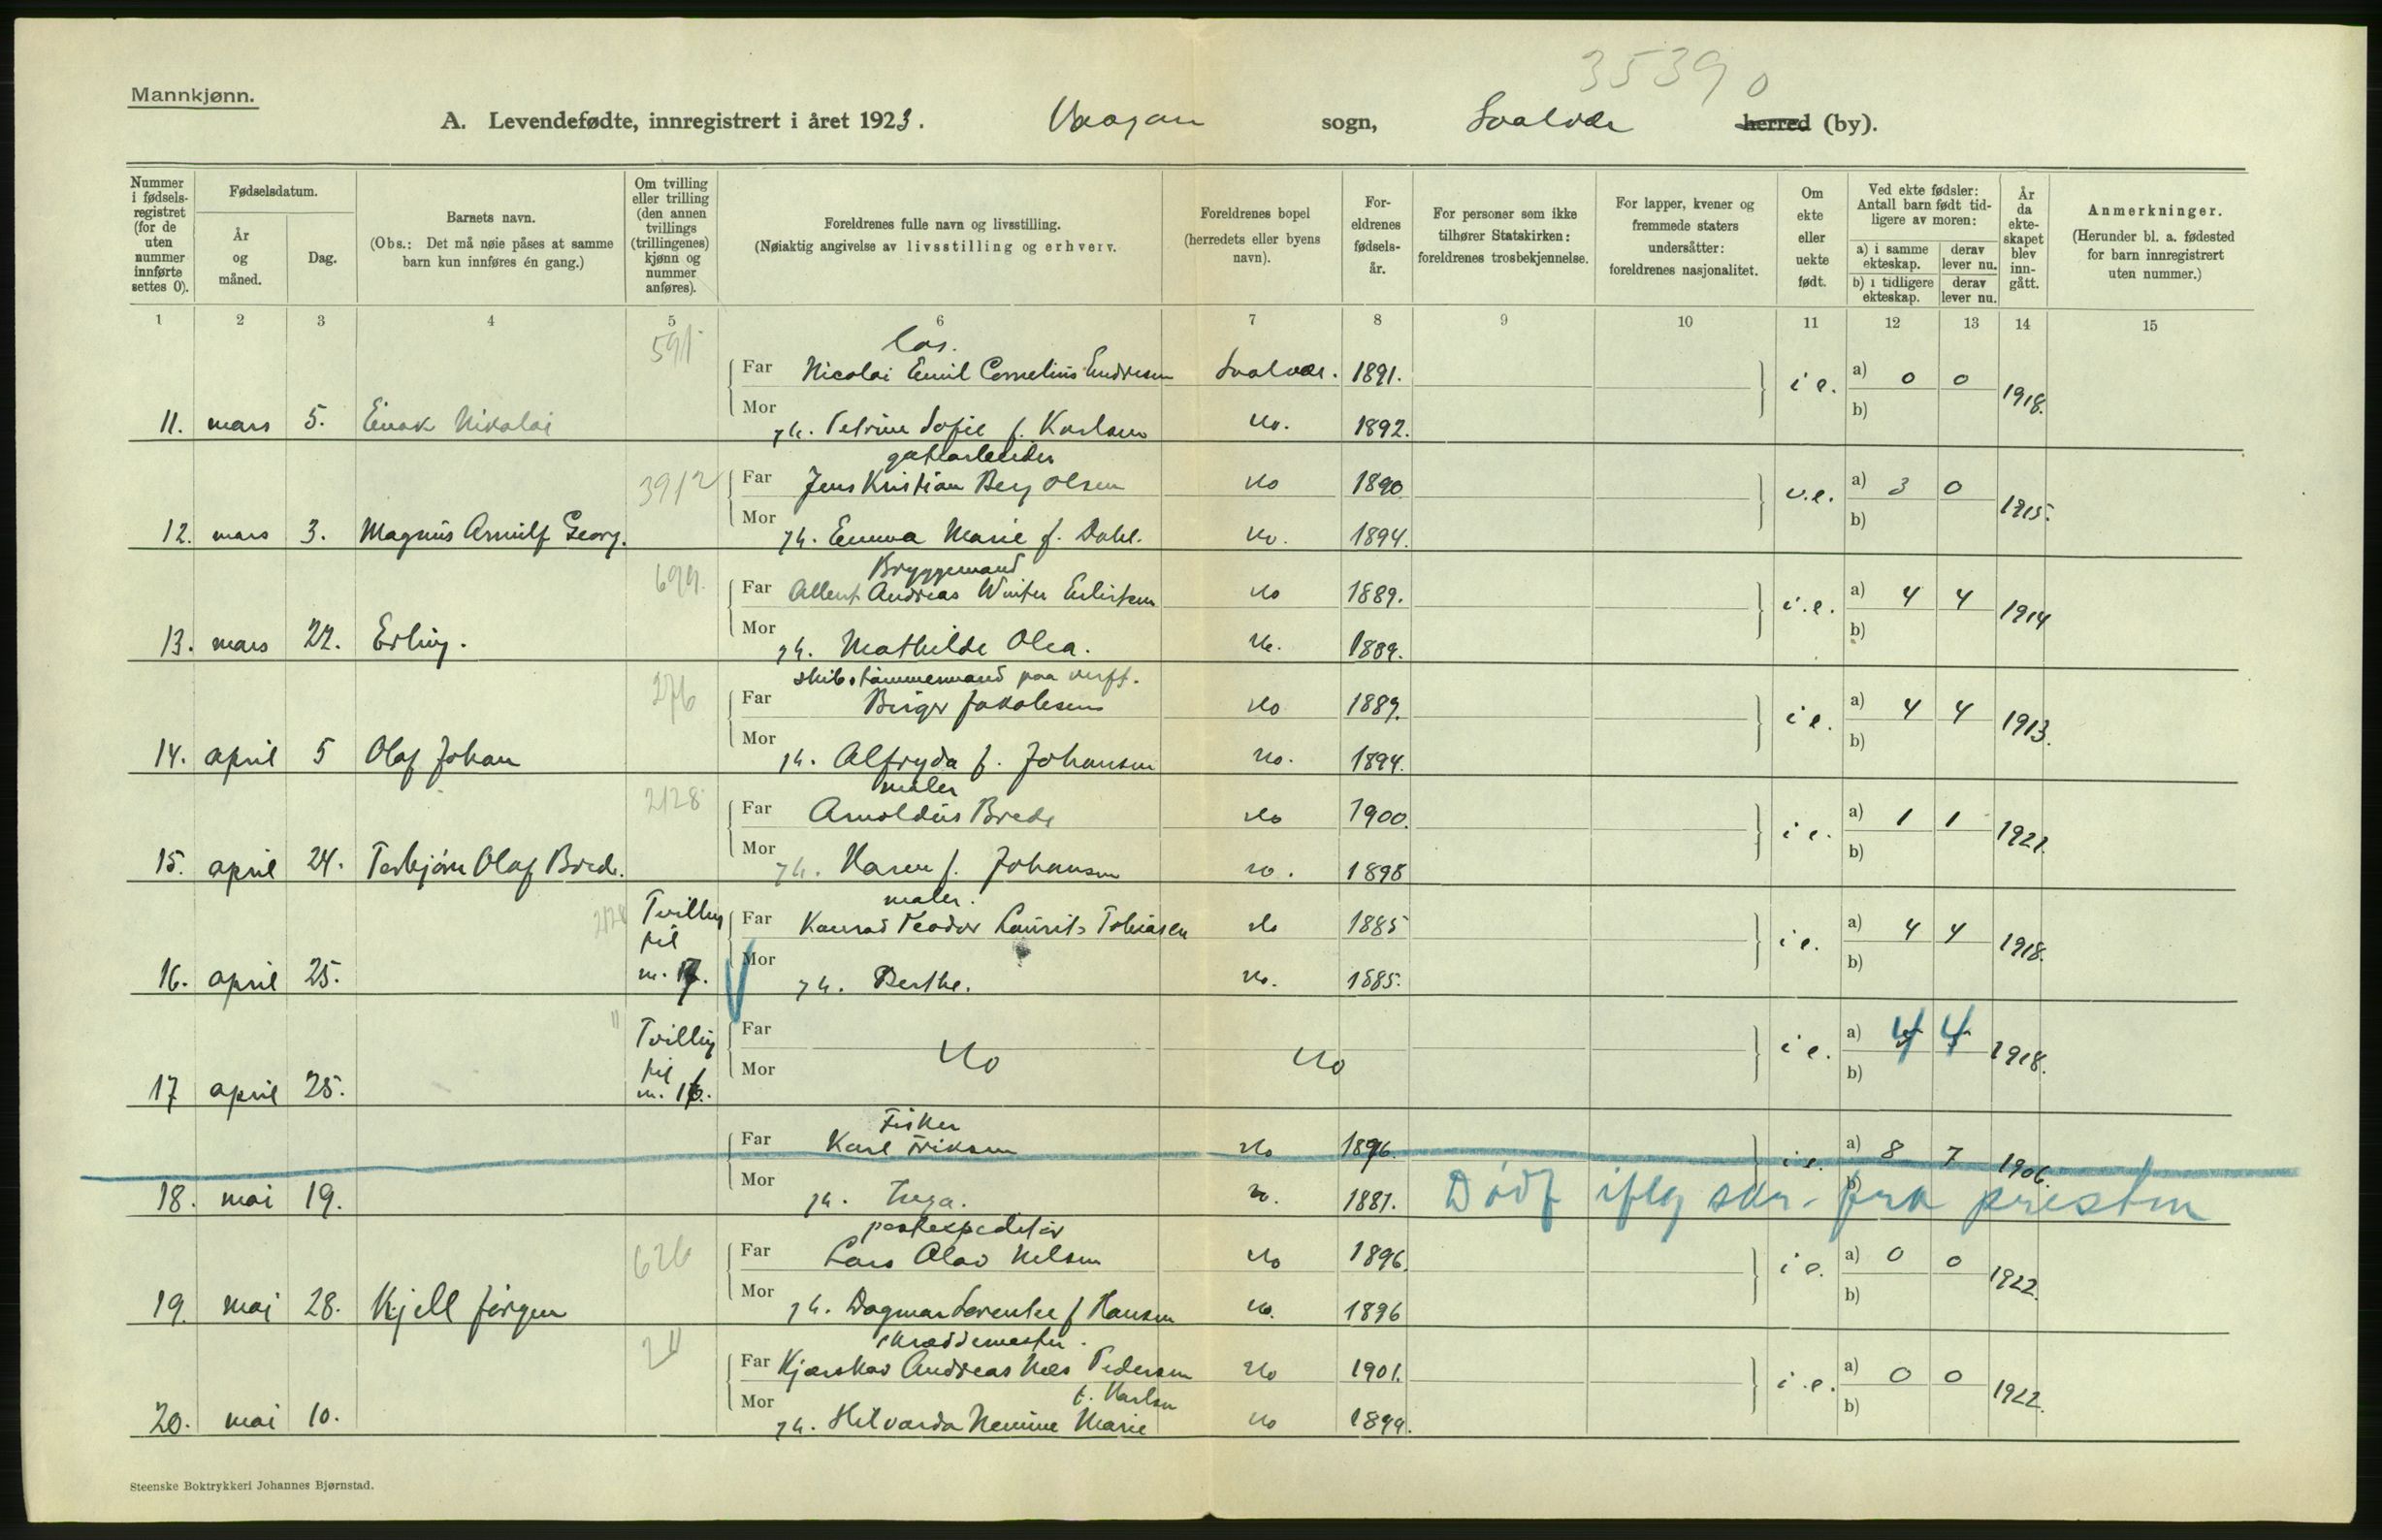 35390
Mannkjønn.
A. Levendefødte, innregistrert i året 1923. Vaagan sogn, Svolvær herred (by).
Nummer i fødselsregistret (for de uten nummer innførte settes 0).
Fødselsdatum.
År og måned.
Dag.
Barnets navn.
(Obs.: Det må nøie påses at samme barn kun innføres én gang.)
Om tvilling eller trilling (den annen tvillings (trillingenes) kjønn og nummer anføres).
Foreldrenes fulle navn og livsstilling.
(Nøiaktig angivelse av livsstilling og erhverv.
Foreldrenes bopel (herredets eller byens navn).
Foreldrenes fødselsår.
For personer som ikke tilhører Statskirken: foreldrenes trosbekjennelse.
For lapper, kvener og fremmede staters undersåtter: foreldrenes nasjonalitet.
Om ekte eller uekte født.
Ved ekte fødsler: Antall barn født tidligere av moren:
a) i samme ekteskap.
derav lever nu.
b) i tidligere ekteskap.
derav lever nu.
År da ekteskapet blev inngått.
Anmerkninger.
(Herunder bl. a. fødested for barn innregistrert uten nummer.)
1 2 3 4 5 6 7 8 9 10 11 12 13 14 15
591
los.
Far Nicolai Emil Cornelius Endresen Svolvær. 1891. i e. a) 0 0 1918.
11. mars 5. Einar Nikolai Mor gh. Petrine Sofie f. Karlsen do. 1892. b)
3912
gatearbeider
Far Jens Kristian Berg Olsen do 1890 u.e. a) 3 0 1915.
12. mars 3. Magnus Arnulf Georg. Mor gh. Emma Marie f. Dahl. do. 1894. b)
699.
Bryggemand
Far Albert Andreas Winter do 1889. i.e. a) 4 4 1914
13. mars 22. Erling. Mor gh. Mathilde Olea. do. 1889. b)
276
skibstømmermand paa verft.
Far Birger Jakobsen do 1889. i e. a) 4 4 1913.
14. april 5 Olaf Johan Mor gh. Alfryda f. Johansen do. 1894. b)
2128
maler
Far Arnoldus Brede do 1900. i e. a) 1 1 1921.
15. april 24. Torbjörn Olaf Brede. Mor gh. Karen f. Johansen do. 1898 b)
2128
maler.
Tvilling til m. 17.
Far Konrad Teodor Laurits Tobiasen do 1885 i e. a) 4 4 1918.
16. april 25. Mor gh. Berthe. do. 1885. b)
"
Tvilling til m. 16.
Far do do i e. a) 4 4 1918.
17 april 25. Mor b)
Fisker
Far Karl Eriksen do 1876. i e. a) 8 7 1906.
18. mai 19. Mor gh. Inga. do. 1881. b)
Dødf iflg skr. fra presten
626
postexpeditör
Far Lars Olav Nelsen do 1896. i e. a) 0 0 1922.
19. mai 28. Kjell Jørgen Mor gh. Dagmar Lorentse f Hansen do. 1896 b)
211
skreddemester.
Far Kjerskov Andreas Næs Pedersen do 1901. i.e. a) 0 0 1922.
f. Karlsen
20. mai 10. Mor gh. Hilvarda Nemine Marie do 1899. b)
Steenske Boktrykkeri Johannes Bjørnstad.